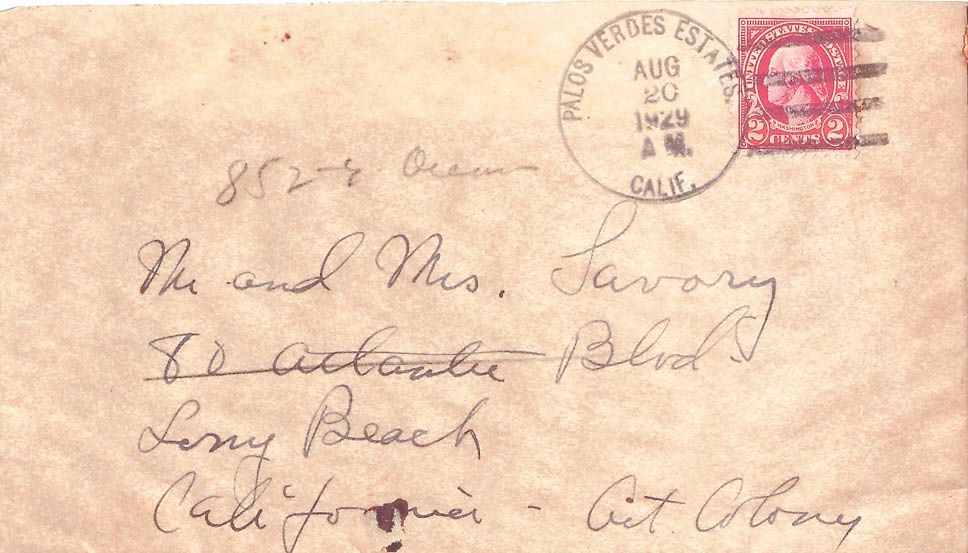 PALOS VERDES ESTATES.
AUG
20
1929
A M.
CALIF.
UNITED STATES POSTAGE
WASHINGTON
2 CENTS 2
852 Ocean
Mr and Mrs. Savory
80 Atlantic Blvd.
Long Beach
California - Art Colony